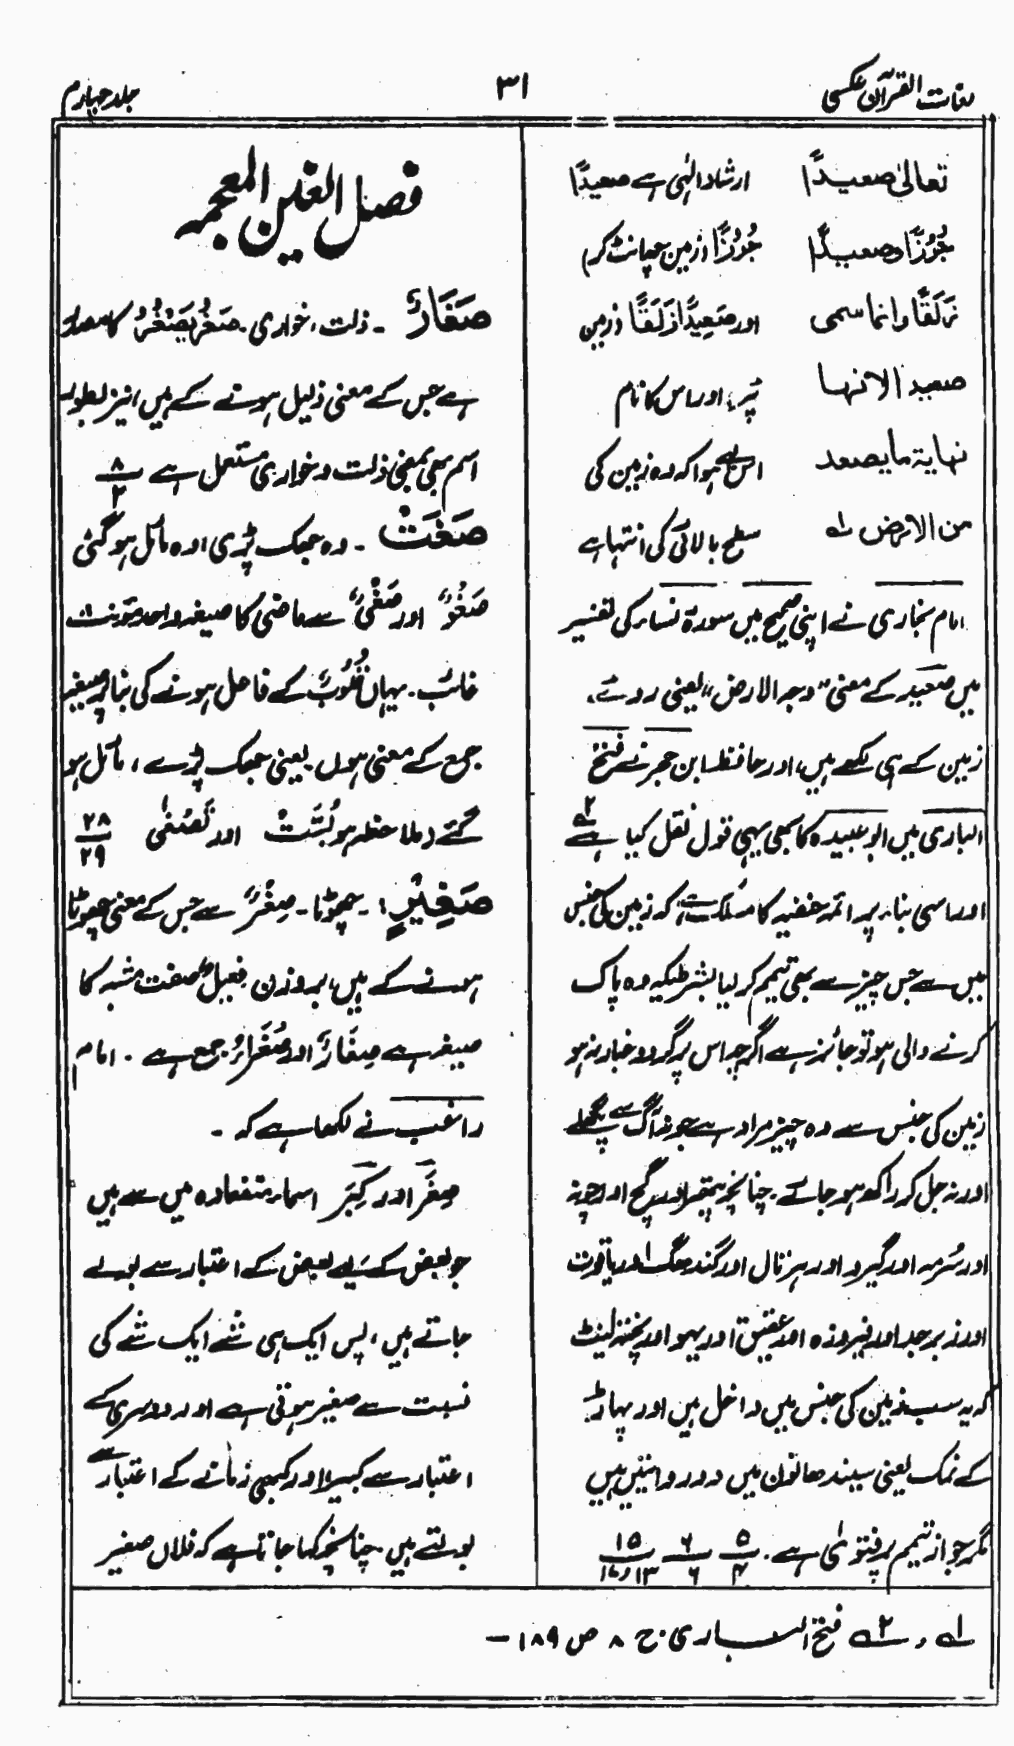 لغات القرآن عکسی
۳۱
جلد چہارم
تعالیٰ صعیدًا ارشاد الٰہی ہے صعیدًا
جُرُزًا وصعیدًا جُرُزًا (زمین چھانٹ کر)
زَلَقًا وانما سمی اور صَعِیدًا زَلَقًا (زمین
صعیدا لانھا پٹ پر) اور اس کا نام
نھایۃ ما یصعد اس لئے ہوا کہ وہ زمین کی
من الارض ؎۱ سطح بالائی کی انتہا ہے
امام بخاری نے اپنی صحیح میں سورۃ نساء کی تفسیر
میں صَعِید کے معنی "وجہ الارض" یعنی روئے
زمین کے ہی لکھے ہیں، اور حافظ ابن حجر نے فتح
الباری میں ابو عبیدہ کا بھی یہی قول نقل کیا ہے ؎۲
اور اسی بناء پر ائمہ حنفیہ کا مسلک ہے کہ زمین کی جنس
میں سے جس چیز سے بھی تیمم کر لیا بشرطیکہ وہ پاک
کرنے والی ہو تو جائز ہے اگرچہ اس پر گرد و غبار نہ ہو
زمین کی جنس سے وہ چیز مراد ہے جو نہ آگ سے پگھلے
اور نہ جل کر راکھ ہو جائے۔ چنانچہ پتھر اور گچ اور چونہ
اور سُرمہ اور گیرو اور ہڑتال اور گندھک اور یاقوت
اور زبرجد اور فیروزہ اور عقیق اور اور پختہ اینٹ
کہ یہ سب زمین کی جنس میں داخل ہیں اور پہاڑ
کے نمک یعنی سیندھا نون میں دو روایتیں ہیں
مگر جواز تیمم پر فتویٰ ہے۔ ۵/۴ ۶/۶ ۱۵/۱۳و۱۶
فصل الغین المعجمہ
صَغَارٌ ۔ ذلت، خواری۔ صَغُرَ یَصْغُرُ کا مصدر
ہے جس کے معنی ذلیل ہونے کے ہیں، نیز بطور
اسم بھی بمعنی ذلت و خواری مستعمل ہے ۸/۲
صَغَتْ ۔ وہ جھک پڑی، وہ مائل ہو گئی
صَغْوٌ اور صَغْیٌ سے ماضی کا صیغہ واحد مؤنث
غائب۔ یہاں قُلُوبٌ کے فاعل ہونے کی بنا پر صیغہ
جمع کے معنی ہوں یعنی جھک پڑے، مائل ہو
گئے (ملاحظہ ہو بُسَّتْ اور تَصْغٰی) ۲۸/۲۹
صَغِیْرٍ: ۔ چھوٹا۔ صِغْرٌ سے جس کے معنی چھوٹا
ہونے کے ہیں، بروزن فعیل صفت مشبہ کا
صیغہ ہے صِغَارٌ اور صُغَرَاءُ جمع ہے۔ امام
راغب نے لکھا ہے کہ ۔
صِغَر اور کِبَر اسماء متضادہ میں سے ہیں
جو بعض کے لیے بعض کے اعتبار سے بولے
جاتے ہیں، پس ایک ہی شے ایک شے کی
نسبت سے صغیر ہوتی ہے اور دوسری کے
اعتبار سے کبیر، اور کبھی زمانے کے اعتبار سے
بولتے ہیں۔ چنانچہ کہا جاتا ہے کہ فلاں صغیر
؎۱ و ؎۲ فتح الباری۔ ج ۸ ص ۱۸۹۔